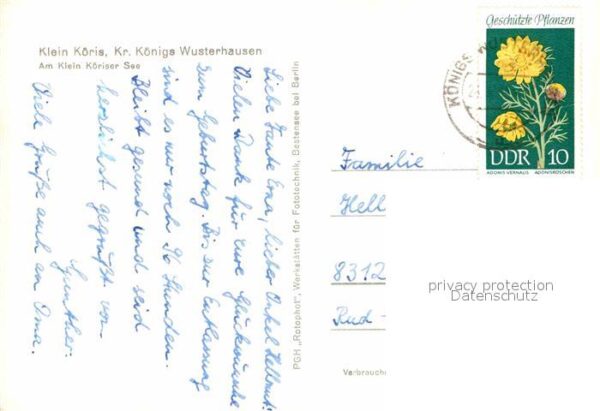 Klein Köris, Kr. Königs Wusterhausen
Am Klein Köriser See
Liebe Tante Erna, lieber Onkel Hellmut!
Vielen Dank für Eure Glückwünsche
zum Geburtstag. Bis zur Entlassung
sind es nur noch 96 Stunden.
Bleibt gesund und seid
herzlichst gegrüßt von
Gunther.
Viele Grüße auch an Oma.
PGH „Rotophot“, Werkstätten für Fototechnik, Bestensee bei Berlin
Geschützte Pflanzen
DDR 10
ADONIS VERNALIS ADONISRÖSCHEN
KÖNIGS
Familie
Hell
8312
Rud-
Verbrauche
privacy protection
Datenschutz